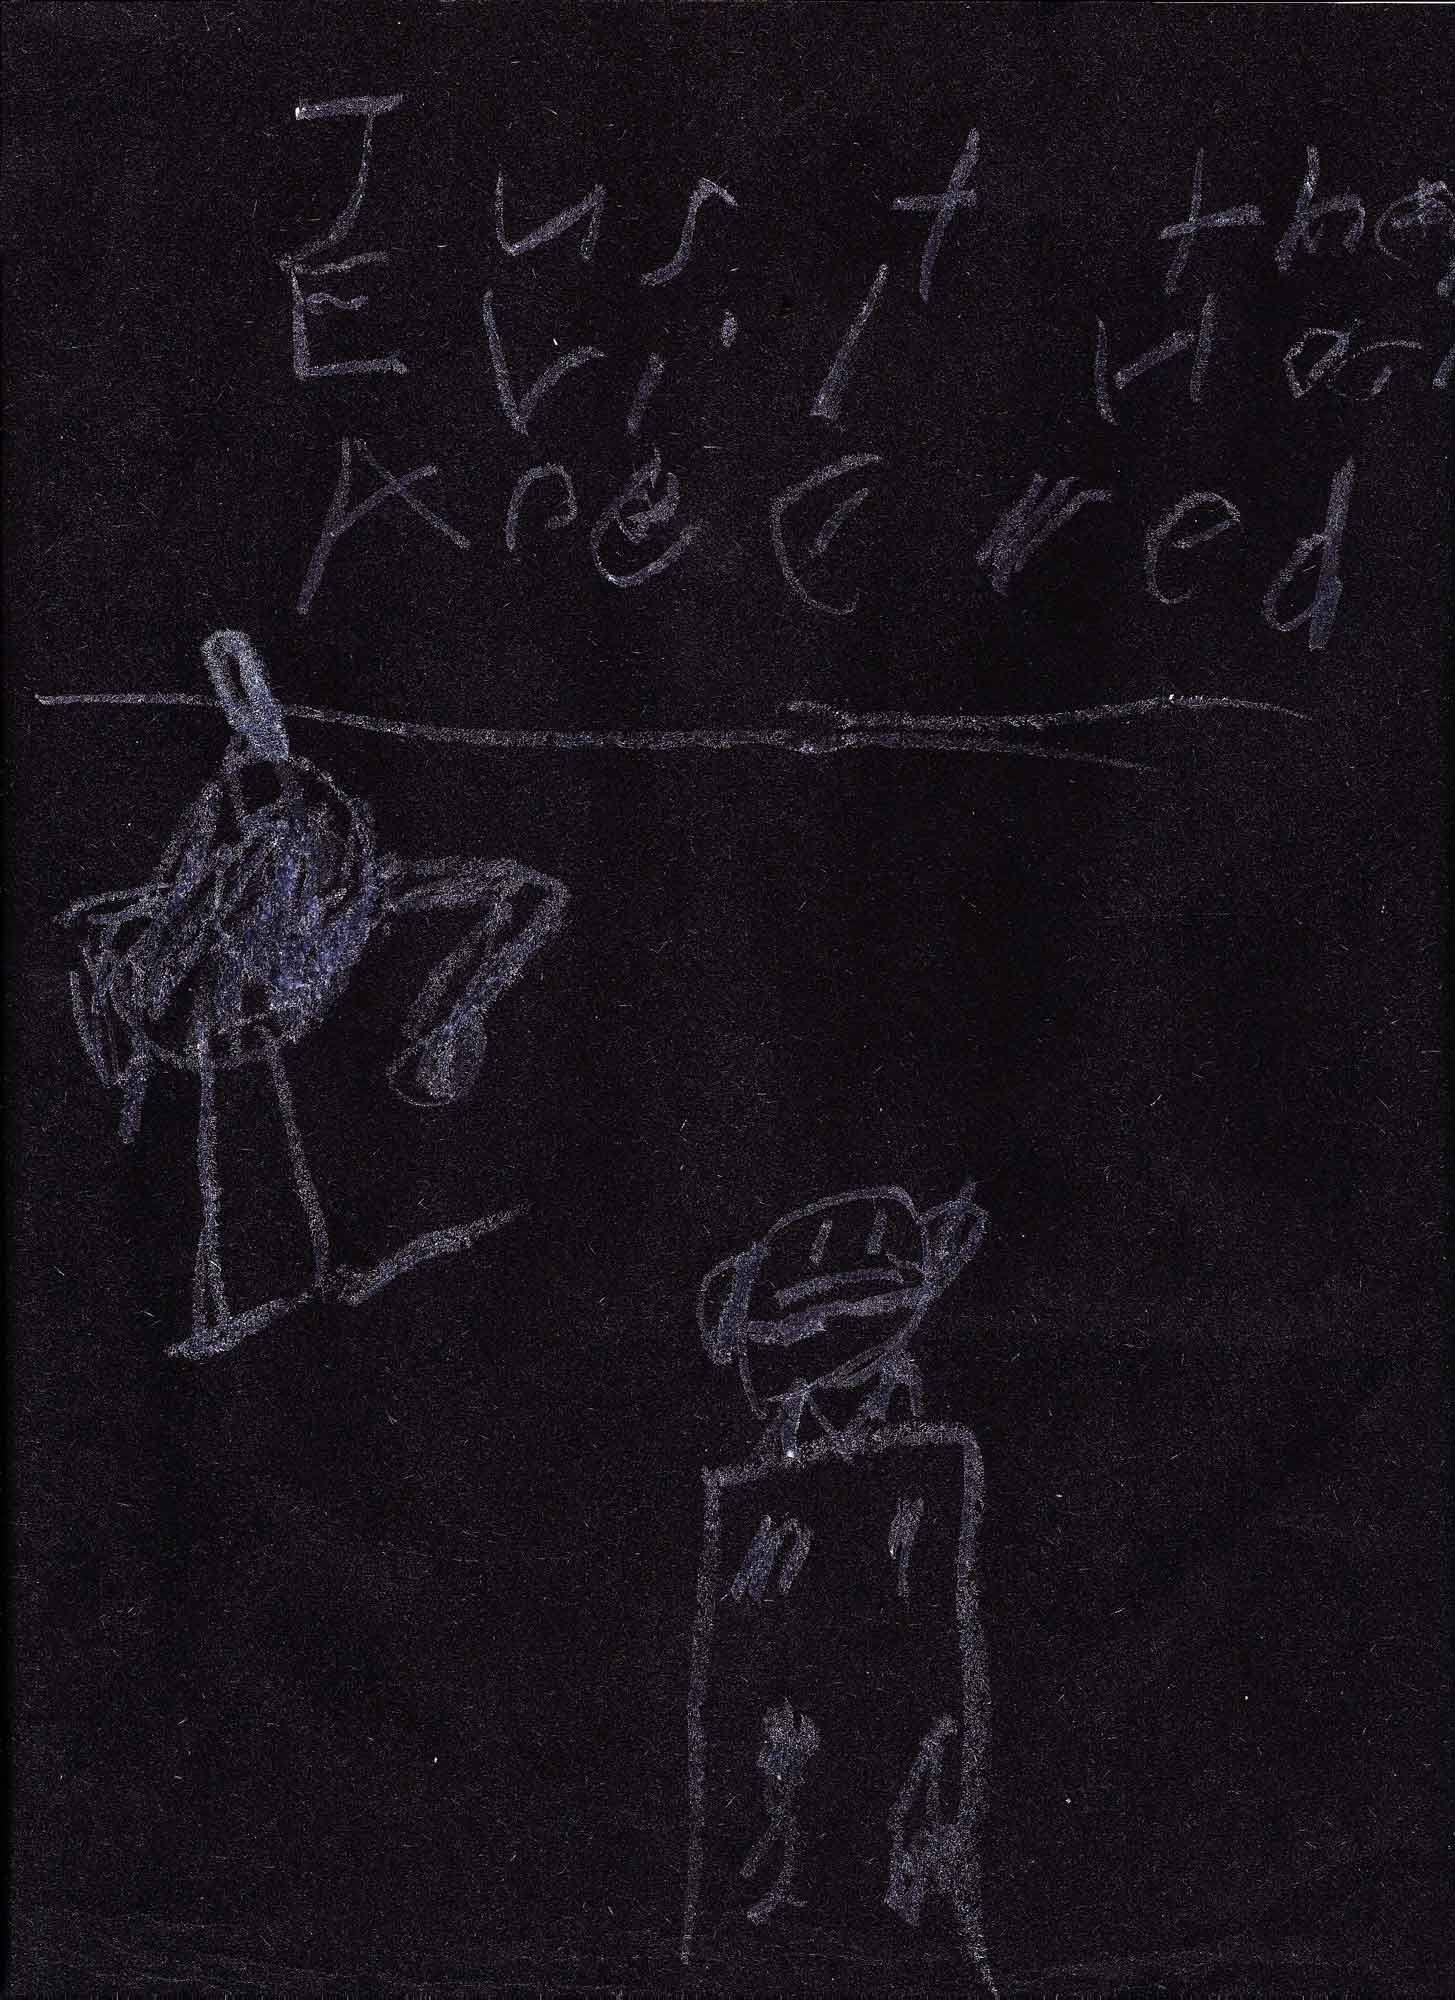 Just the
Evil Ha
Apeered